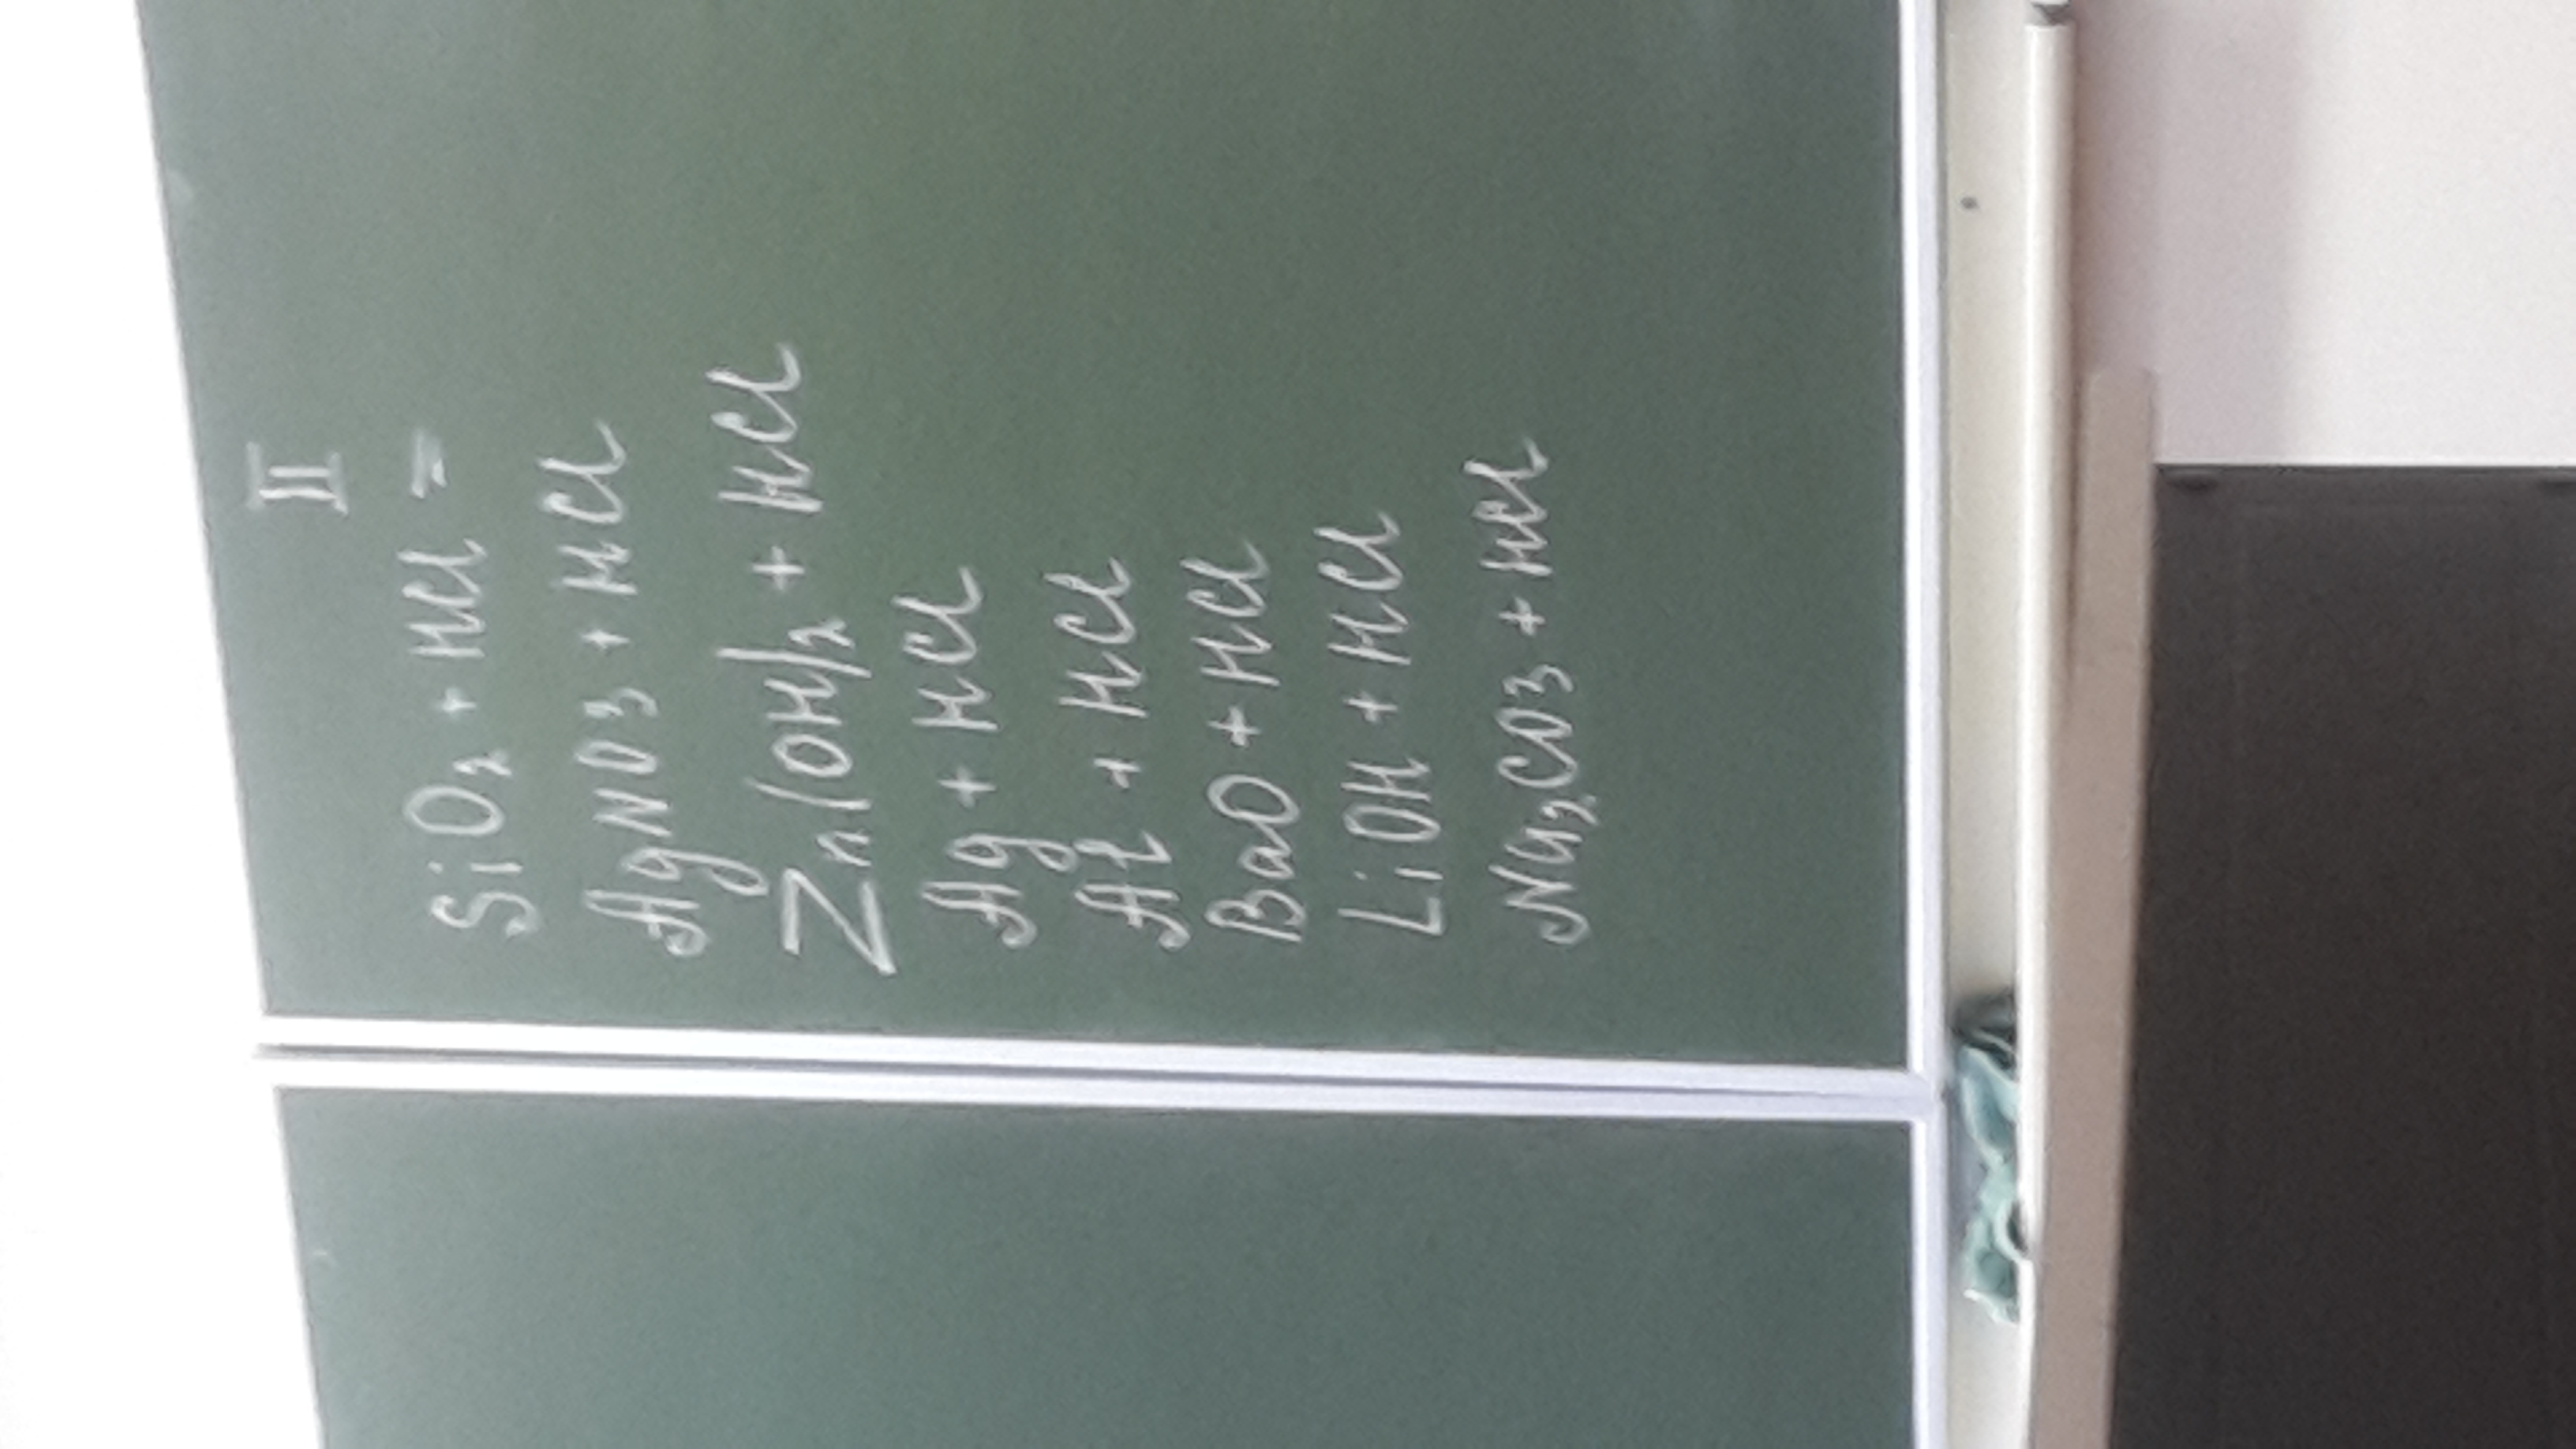 II
SiO2 + HCl =
AgNO3 + HCl
Zn(OH)2 + HCl
Ag + HCl
Al + HCl
BaO + HCl
LiOH + HCl
Na2CO3 + HCl